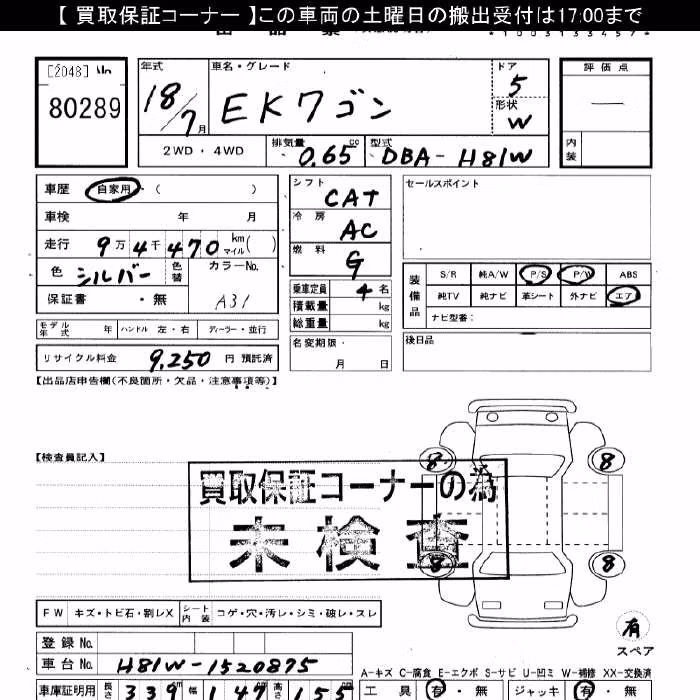 【 買取保証コーナー 】この車両の土曜日の搬出受付は17:00まで
[2048] No
80289
年式 車名・グレード ドア 評価点
18/7月 EKワゴン 5
形状 W
2WD・4WD 排気量 0.65 cc 型式 DBA-H81W
内装
車歴 自家用 ( )
車検 年 月
走行 9万4千470 km マイル ( )
色 シルバー 色替 カラーNo.
保証書 ・無 A31
シフト CAT
冷房 AC
燃料 G
乗車定員 4 名
積載量 kg
総重量 kg
セールスポイント
装備品 S/R 純A/W P/S P/W ABS
純TV 純ナビ 革シート 外ナビ エア
ナビ型番:
モデル年式 年 ハンドル 左・右 ディーラー・並行
リサイクル料金 9,250 円 預託済
名変期限・ 月 日
後日品
【出品店申告欄(不良箇所・欠品・注意事項等)】
【検査員記入】
買取保証コーナーの為
未検査
8 8
8 8
FW キズ・トビ石・割レX シート内装 コゲ・穴・汚レ・シミ・破レ・スレ
有
スペア
登録 No.
車台 No. H81W-1520875
A-キズ C-腐食 E-エクボ S-サビ U-凹ミ W-補修 XX-交換済
車庫証明用 長さ 339 幅 147 高さ 155
工具 有・無 ジャッキ 有・無